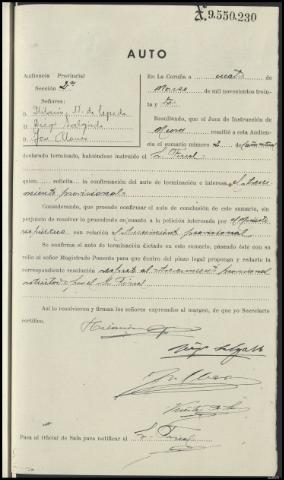 X.9.550.230
AUTO
Audiencia Provincial
Sección 2ª
Señores:
D. Hilario N. de Cepeda
D. Diego Salgado
D. José
En La Coruña a de
Marzo de mil novecientos trein-
ta y
Resultando, que el Juez de Instrucción de
remitió a esta Audien-
cia el sumario número 2 de
declarado terminado, habiéndose instruído el Sr. Fiscal
quien solicita la confirmación del auto de terminación e interesa el sobresei-
miento provisional.
Considerando, que procede confirmar el auto de conclusión de este sumario, sin
perjuicio de resolver lo procedente conjunto a la petición interesada por el
con relación al sobreseimiento provisional
Se confirma el auto de terminación dictado en este sumario, pásesele éste con su
rollo al señor Magistrado Ponente para que dentro del plazo legal proponga y redacte la
correspondiente resolución respecto al sobreseimiento provisional
por el Sr. Fiscal
Así lo resolvieron y firman los señores expresados al margen, de que yo Secretario
certifico.
Hilario
Diego Salgado
Para el Oficial de Sala para notificar al Sr. Fiscal